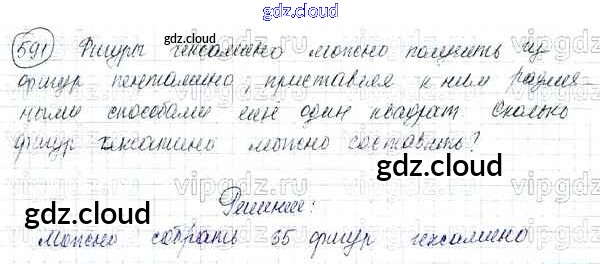 gdz.cloud
591 Фигуры гексамино можно получить из
фигур пентамино, приставляя к ним различ-
ными способами ещё один квадрат. Сколько
фигур гексамино можно составить?
gdz.cloud
gdz.cloud
gdz.cloud
vipgdz.ru
Решение:
gdz.cloud
gdz.cloud
Можно собрать 35 фигур гексамино